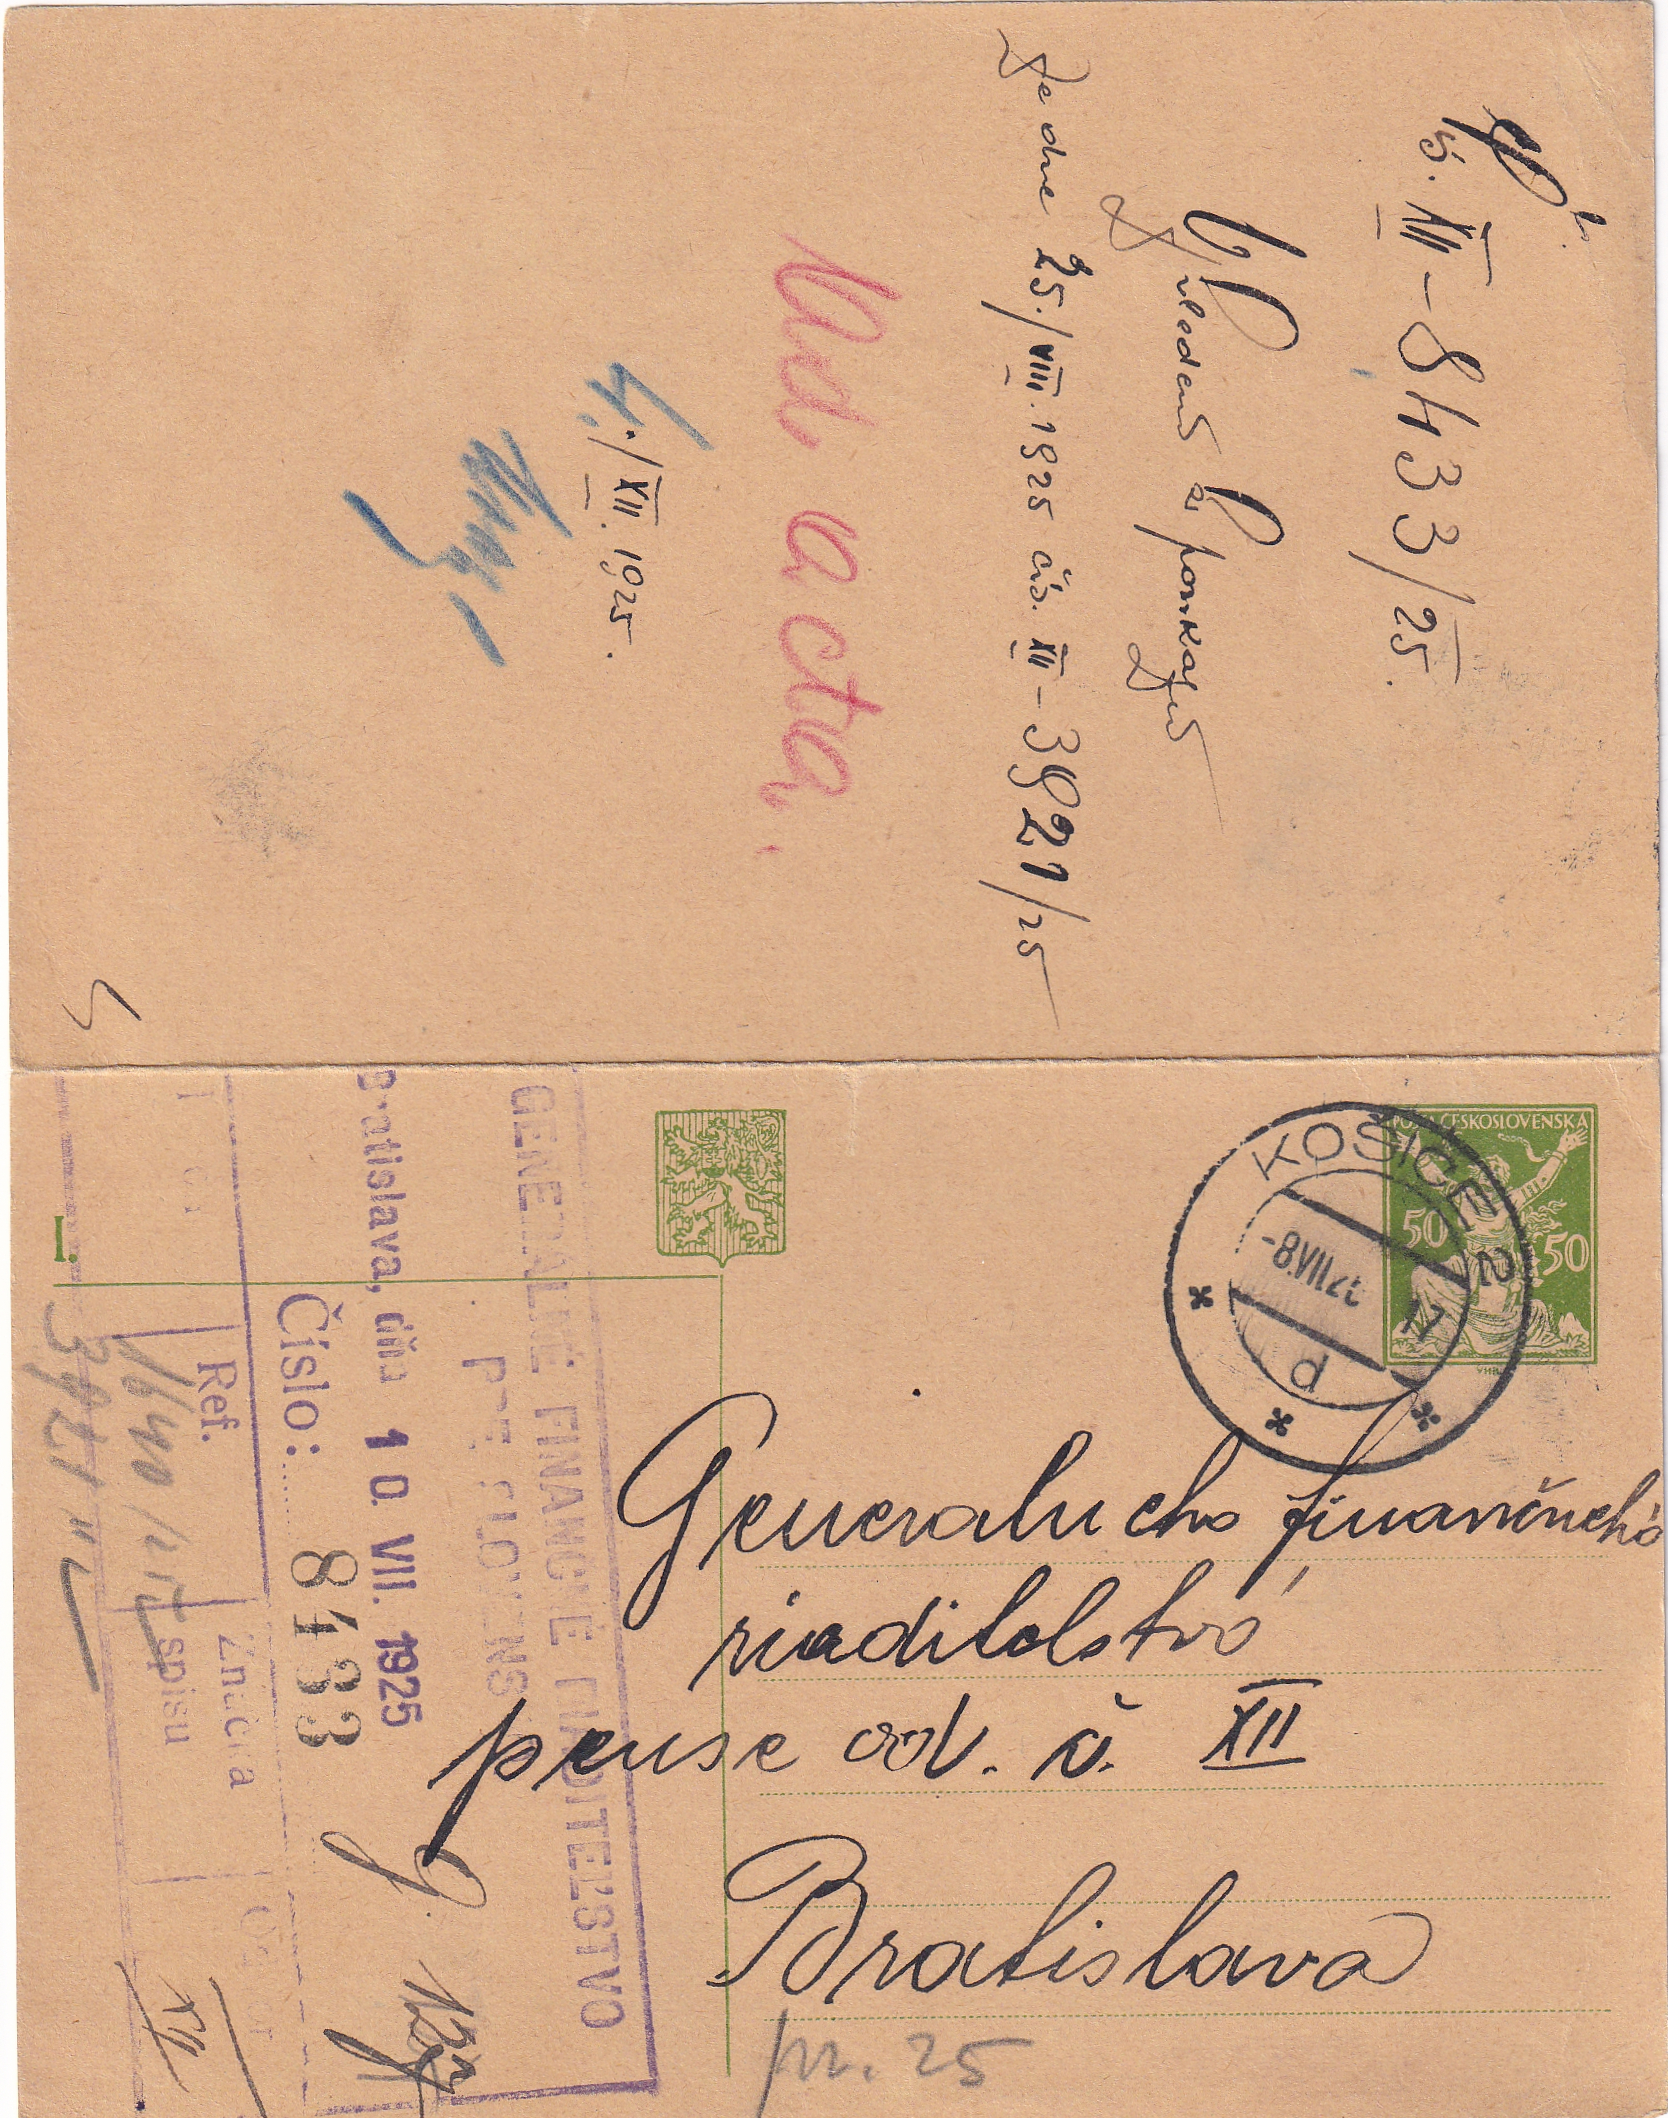 č. XII-8433/25.
ze dne 25./VIII. 1925 čís. XII-3921/25
Ad acta.
4./XII. 1925.
POŠTA ČESKOSLOVENSKÁ
50 50
KOŠICE 2
-8.VII.25 17
d
I.
GENERÁLNÉ FINANČNÉ RIADITEĽSTVO
PRE SLOVENS
Bratislava, dňa 10. VII. 1925
Číslo: 8433
Ref.
Značka
spisu
3921
XII
Generalneho finančneho
riaditelstvo
pense odd. č. XII
Bratislava
pr. 25